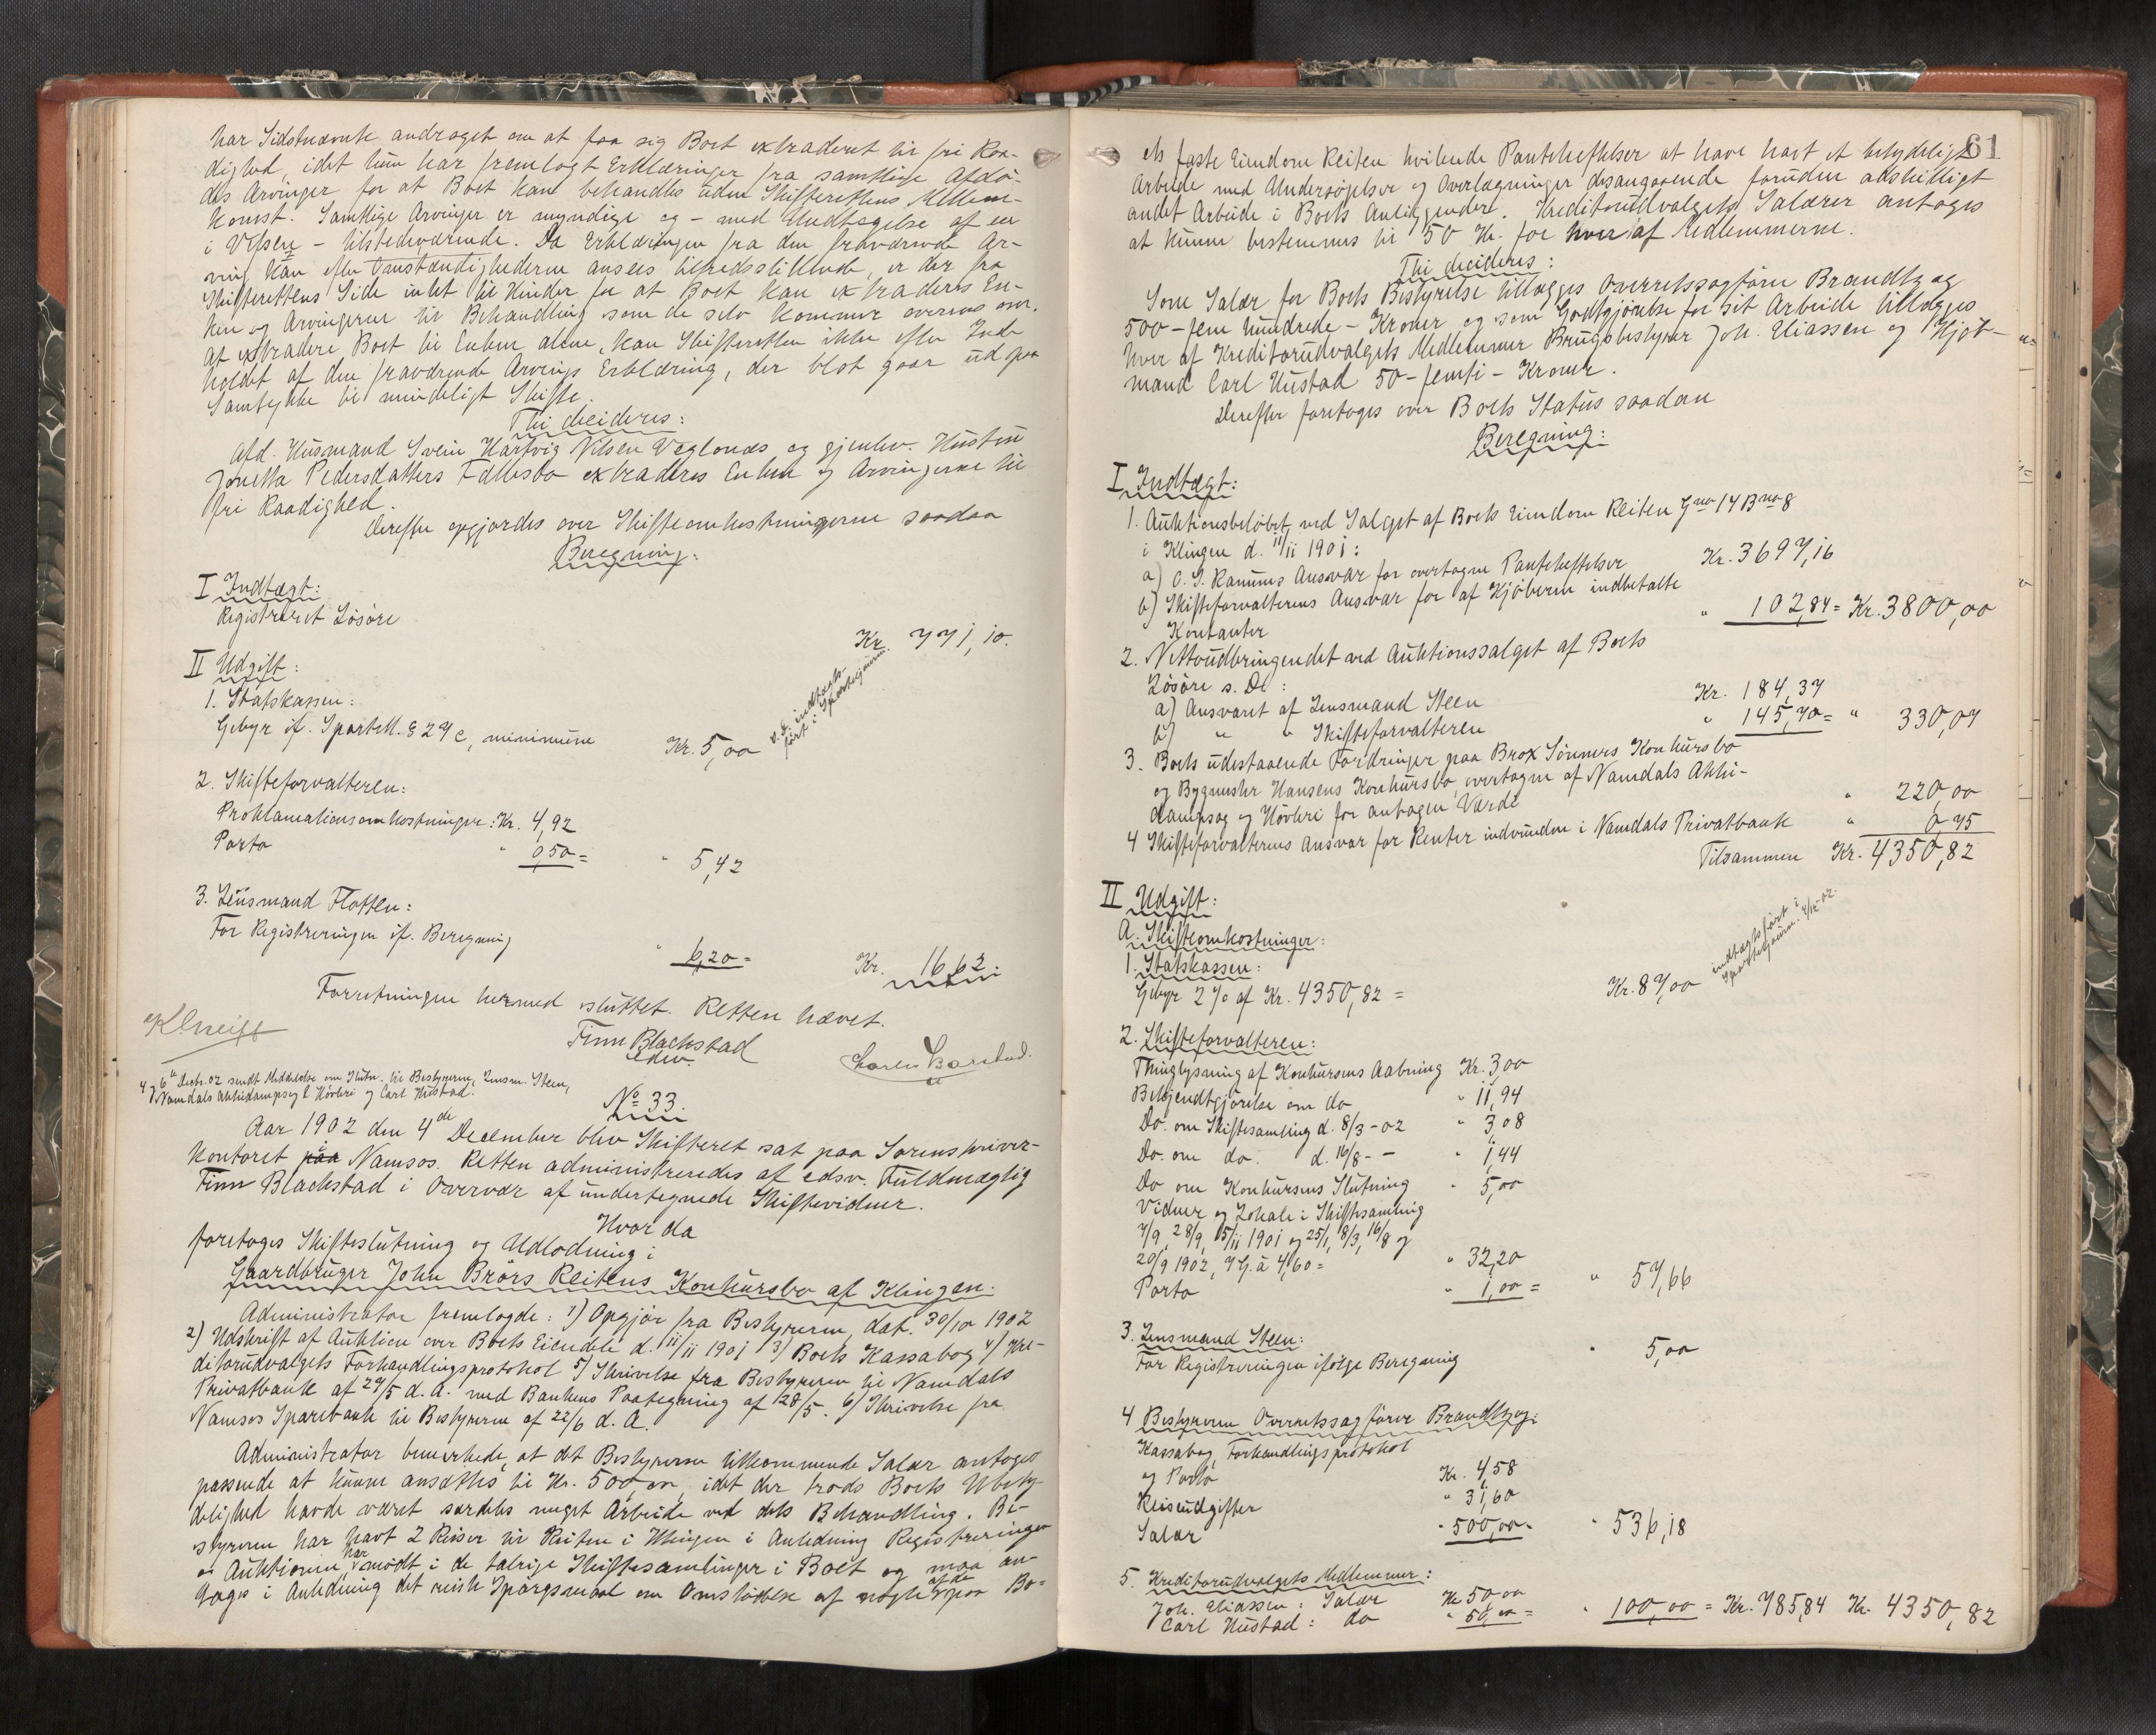 har Sidstnævnte andraget om at faa sig Boet extraderet til fri Raa-
dighed, idet hun har fremlagt Erklæringer fra samtlige Afdø-
des Arvinger for at Boet kan behandles uden Skifterettens Mellem-
komst. Samtlige Arvinger er myndige og - med Undtagelse af en
i Vefsen - tilstedeværende. Da Erklæringen fra den fraværende Ar-
ving kan efter Omstændighederne ansees tilfredsstillende, er der fra
Skifterettens Side intet til Hinder for at Boet kan extraderes En-
ken og Arvingerne til Behandling som de selv kommer overens om.
At extradere Boet til Enken alene, kan Skifteretten ikke efter Inde-
holdet af den fraværende Arvings Erklæring, der blot gaar ud paa
Samtykke til mindeligt Skifte.
Thi decideres:
Afd. Husmand Svein Hartvig Nilsen Veglonæs og gjenlev. Hustru
Jonetta Pedersdatters Fællesbo extraderes Enken og Arvingerne til
fri Raadighed.
Derefter opgjordes over Skifteomkostningerne saadan
Beregning:
I Indtægt:
Registreret Løsøre Kr. 771,10.
II Udgift:
1. Statskassen:
Gebyr if. Sportell. § 29 c, minimum Kr. 5,00
s. D. indtægts-
ført i Sportejourn.
2. Skifteforvalteren:
Proklamationsomkostninger: Kr. 4,92
Porto " 0,50 = " 5,42
3. Lensmand Flotten:
For Registreringen if. Beregning " 6,20 = Kr. 16,62.
Forretningen hermed sluttet. Retten hævet.
Finn Blackstad
edsv.
4/ 6te Decbr. 02 sendt Meddelelse om Slutn. til Bestyreren, Lensm. Steen,
Namdals Aktiedampsag & Høvleri og Carl Hustad.
No 33.
Aar 1902 den 4de December blev Skifteret sat paa Sorenskriver-
kontoret paa Namsos. Retten administreredes af edsv. Fuldmægtig
Finn Blackstad i Overvær af undertegnede Skiftevidner.
Hvor da
foretoges Skifteslutning og Udlodning i
Gaardbruger John Brørs Reitens Konkursbo af Klingen.
Administrator fremlagde: 1) Opgjør fra Bestyreren, dat. 30/10 1902
2) Udskrift af Auktion over Boets Eiendele d. 11/11 1901 3) Boets Kassabog 4) Kre-
ditorudvalgets Forhandlingsprotokol 5) Skrivelse fra Bestyreren til Namdals
Privatbank af 27/5 d. A. med Bankens Paategning af 28/5. 6) Skrivelse fra
Namsos Sparebank til Bestyreren af 22/6 d. A.
Administrator bemærkede, at det Bestyreren tilkommende Salær antoges
passende at kunne ansættes til Kr. 500,00, idet der trods Boets Ubety-
delighed havde været særdeles meget Arbeide ved dets Behandling. Be-
styreren har havt 2 Reiser til Reiten i Klingen i Anledning Registreringen
og Auktionen, har mødt i de talrige Skiftesamlinger i Boet og maa an-
tages i Anledning det reiste Spørgsmaal om Omstødelse af nogle af de paa Bo-
61
ets faste Eiendom Reiten hvilende Panteheftelser at have havt et betydeligt
Arbeide med Undersøgelser og Overlægninger desangaaende foruden adskilligt
andet Arbeide i Boets Anliggender. Kreditorudvalgets Salærer antoges
at kunne bestemmes til 50 Kr. for hver af Medlemmerne.
Thi decideres:
Som Salær for Boets Bestyrelse tillægges Overretssagfører Brandtzæg
500 - fem hundrede - Kroner og som Godtgjørelse for sit Arbeide tillægges
hver af Kreditorudvalgets Medlemmer Brugsbestyrer Joh. Eliassen og Kjøb-
mand Carl Hustad 50 - femti - Kroner.
Derefter foretoges over Boets Status saadan
Beregning:
I Indtægt:
1. Auktionsbeløbet ved Salget af Boets Eiendom Reiten Gno 14 Bno 8
i Klingen d. 11/11 1901:
a) O. S. Ranums Ansvar for overtagne Panteheftelser Kr. 3697,16
b) Skifteforvalterens Ansvar for af Kjøberen indbetalte
Kontanter " 102,84 = Kr. 3800,00
2. Nettoudbringendet ved Auktionssalget af Boets
Løsøre s. D.:
a) Ansvaret af Lensmand Steen Kr. 184,37
b) " " Skifteforvalteren " 145,70 = " 330,07
3. Boets udestaaende Fordringer paa Brox Sønners Konkursbo
og Bygmester Hansens Konkursbo, overtagne af Namdals Aktie-
dampsag og Høvleri for antagen Værdi " 220,00
4 Skifteforvalterens Ansvar for Renter indvundne i Namdals Privatbank " 0,75
Tilsammen Kr. 4350,82
II Udgift:
A. Skifteomkostninger:
1. Statskassen:
Gebyr 2 % af Kr. 4350,82 = Kr. 87,00
indtægtsført i
Sportejourn. 4/12-02.
2. Skifteforvalteren:
Thinglysning af Konkursens Aabning Kr. 3,00
Bekjendtgjørelse om do " 11,94
Do. om Skiftesamling d. 8/3-02 " 3,08
Do. om do. d. 16/8 - - " 1,44
Do om Konkursens Slutning " 5,00
Vidner og Lokale i Skiftesamling
7/9, 28/9, 15/11 1901 og 25/1, 8/3, 16/8 og
20/9 1902, 7 G. à 4,60 = " 32,20
Porto " 1,00 = " 57,66
3. Lensmand Steen:
For Registreringen ifølge Beregning " 5,00
4 Bestyreren Overretssagfører Brandtzæg:
Kassabog, Forhandlingsprotokol
og Porto Kr. 4,58
Reiseudgifter " 31,60
Salær " 500,00 = " 536,18
5. Kreditorudvalgets Medlemmer:
Joh. Eliassen: Salær Kr. 50,00
Carl Hustad: do " 50,00 = " 100,00 = Kr. 785,84 Kr. 4350,82